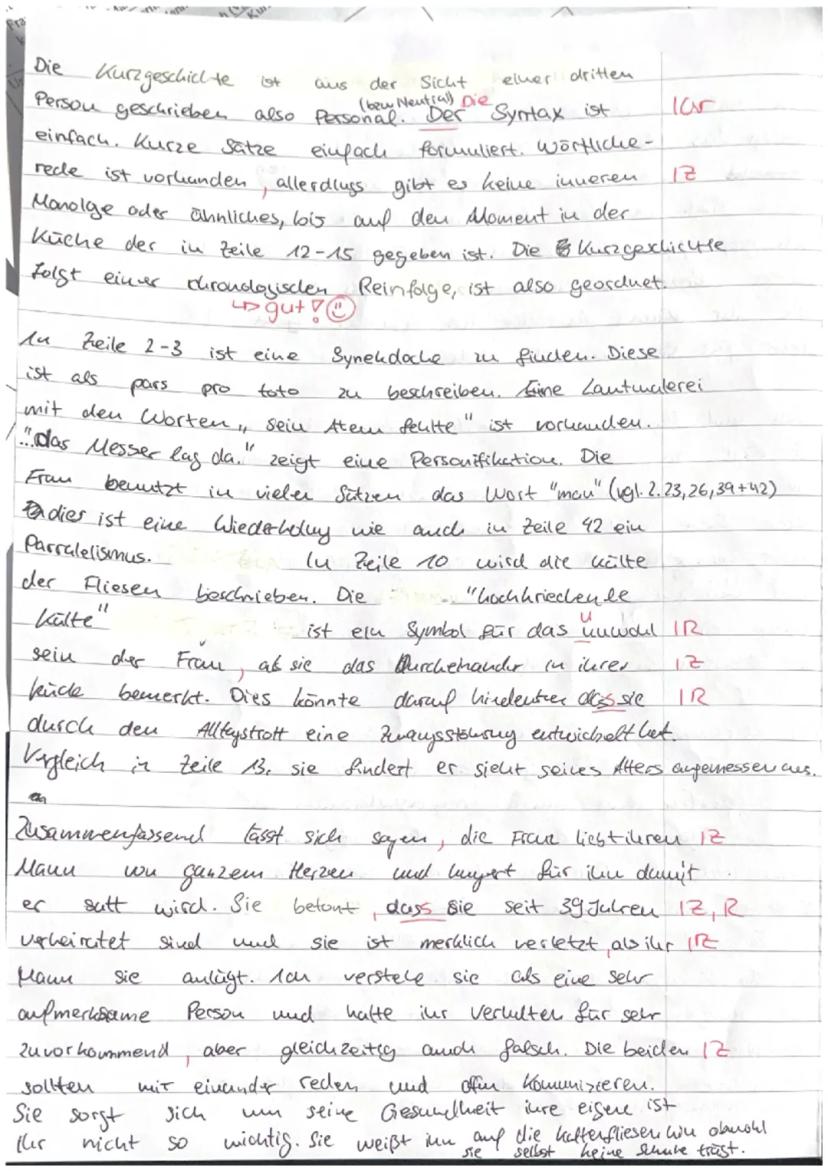 Die Kurzgeschichte ist aus der Sicht einer dritten
Person geschrieben also Personal. (bzw Neutral) Die Der Syntax ist IGr
einfach. Kurze Sätze einfach formuliert. Wörtliche-
rede ist vorhanden, allerdings gibt es keine inneren IZ
Monolge oder ähnliches, bis auf den Moment in der
Küche der in Zeile 12-15 gegeben ist. Die Kurzgeschichte
folgt einer chronologischen Reinfolge, ist also geordnet.
↳ gut! ☺
In Zeile 2-3 ist eine Synekdoche zu finden. Diese
ist als pars pro toto zu beschreiben. Eine Lautmalerei
mit den Worten „sein Atem fehlte" ist vorhanden.
"..das Messer lag da." zeigt eine Personifikation. Die
Frau benutzt in vielen Sätzen das Wort "man" (vgl. Z. 23, 26, 39+42)
dies ist eine Wiederholung wie auch in Zeile 42 ein
Parralelismus. In Zeile 10 wird die Kälte
der Fliesen beschrieben. Die "hochkriechende
Kälte" ist ein Symbol für das unwohl IR
sein der Frau, als sie das Durcheinander in ihrer IZ
Küche bemerkt. Dies könnte darauf hindeuten dass sie IR
durch den Alltagstrott eine Zwangsstörung entwickelt hat.
Vergleich in Zeile 13, sie findert er sieht seines Alters angemessen aus.
Zusammenfassend lässt sich sagen, die Frau liebt ihren IZ
Mann von ganzem Herzen und hungert für ihn damit
er satt wird. Sie betont, dass sie seit 39 Jahren IZ, R
verheiratet sind und sie ist merklich verletzt, als ihr IZ
Mann sie anlügt. Ich verstehe sie als eine sehr
aufmerksame Person und halte ihr Verhalten für sehr
zuvorkommend, aber gleichzeitig auch falsch. Die beiden IZ
sollten mit einander reden und offen kommunizieren.
Sie sorgt sich um seine Gesundheit ihre eigene ist
ihr nicht so wichtig. Sie weißt ihn auf die kalten fliesen hin obwohl
sie selbst keine Schuhe trägt.